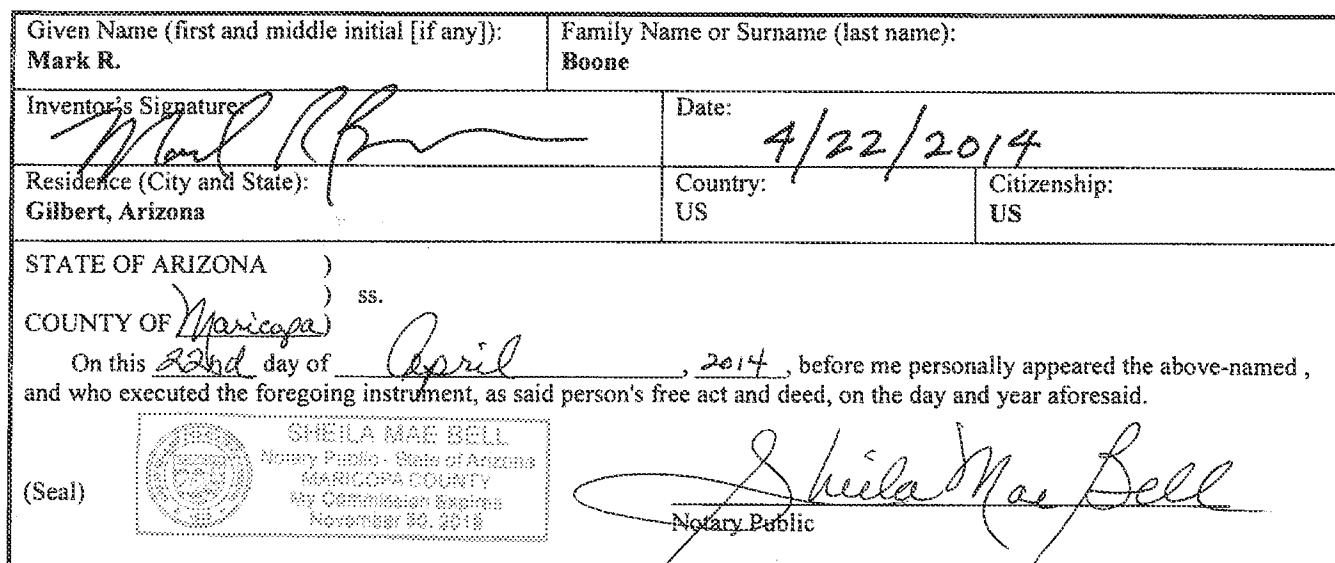 Given Name (first and middle initial [if any]): Family Name or Surname (last name):
Mark R. Boone
Inventor's Signature: Date:
Mark R B 4/22/2014
Residence (City and State): Country: Citizenship:
Gilbert, Arizona US US
STATE OF ARIZONA )
) ss.
COUNTY OF Maricopa )
On this 22nd day of April, 2014, before me personally appeared the above-named ,
and who executed the foregoing instrument, as said person's free act and deed, on the day and year aforesaid.
SHEILA MAE BELL
Notary Public - State of Arizona
MARICOPA COUNTY
My Commission Expires
November 30,
(Seal) Sheila Mae Bell
Notary Public